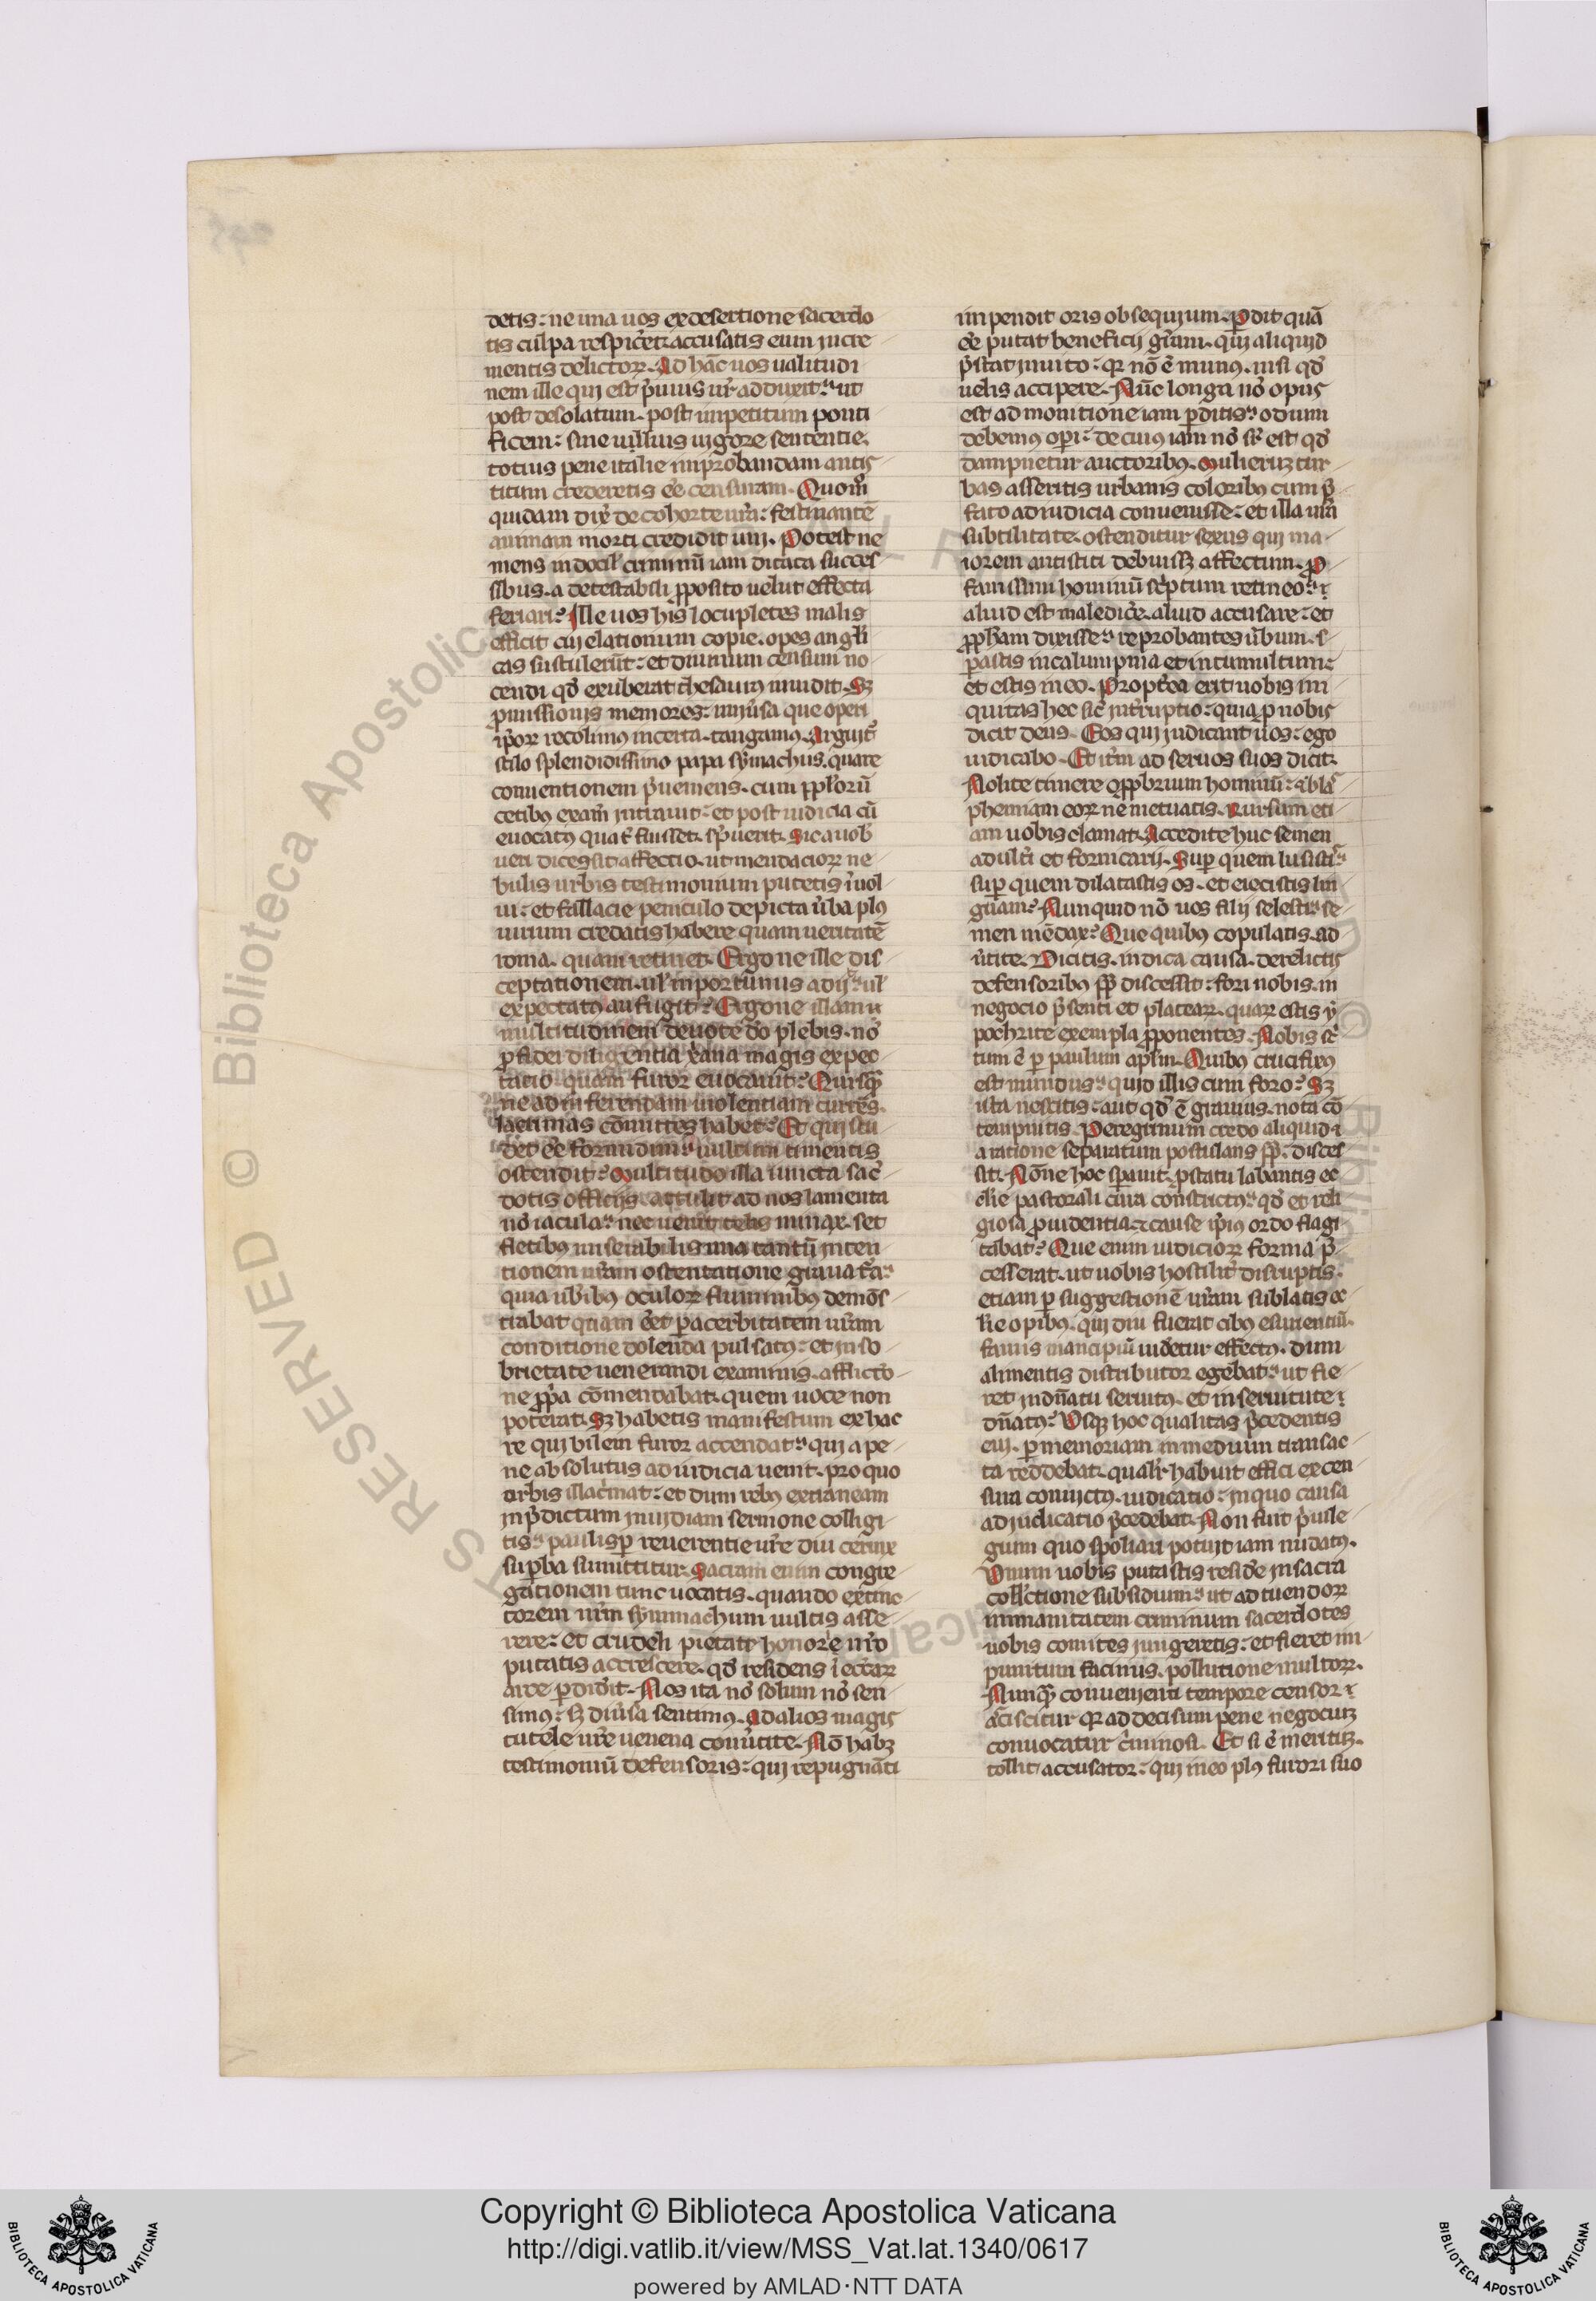 detis: ne una uos ex desertione sacerdo
tis culpa respic̉et: accusatis eum incre
mentis delictoꝝ. Ad hāc uos ualitudi
nem ille qui est p̉uius ur̄ adduxit: ut
post desolatum. post impetitum ponti
ficem: sine ullius uigore sententie.
totius pene italie improbandam antis
titum crederetis eē censuram. Quom̄
quidam dix̉ de cohorte ur̄a: festinantē
animam morti credidit uiū. Potest ne
mens indocil' criminū iam dicata succes
sibus. a detestabili ꝓposito uelut effecta
feriari? Ille uos his locupletes malis
efficit cui elationum copie. opes angl'i
cas sustulerūt: et diuinum censum no
cendi qd̓ exuberat thesaurꝰ inuidit. Sꝫ
ꝓmissionis memores: uniu̓sa que operi
ip̄oꝝ recolimꝰ incerta. tangamꝰ. Arguit̉
stilo splendidissimo papa sȳmachus. quare
conuentionem p̉ueniens. cum pp̄loꝝ
cetibꝰ exam̄ intrauit: et post iudicia cū
euocatꝰ quat̉ fuisset. sp̉uerit. Sic a uob̄
ueri dicessit affectio. ut mendacioꝝ ne
bulis urbis testimonium putetis īuol
ui: et fallacie peniculo depicta u̓ba plꝰ
uirium credatis habere quam ueritatē
roma. quam retinet. Ergo ne ille dis
ceptationem. ul' inportunus adijt: ul'
expectatꝰ aufugit? Ergone illam
multitudinem deuote dō plebis. nō
ꝓ fidei diligentia xana magis expec
tatio quam furor euocauit? Quisq̄
ne ad inferendam uiolentiam currēs.
lacrimas cōmittes habet? Et qui stu
det eē formidini: uultum timentis
ostendit? Multitudo illa iuncta sac̄
dotis officijs. attulit ad nos lamenta
nō iacula: nec uenit telis minax. set
fletibꝰ miserabilis una tantū inten
tionem ur̄am ostentatione grauat̄a:
quia ub̉ibꝰ oculoꝝ fluminibꝰ demōs
trabat quam eēt ꝑ acerbitatem ur̄am
conditione dolenda pulsatꝰ: et in so
brietate uenerandi examinis. afflicto
ne ꝓp̄a cōmendabat. quem uoce non
poterat. Sꝫ habetis manifestum ex hac
re qui bilem furor accendat: qui a pe
ne absolutus ad iudicia uenit. pro quo
orbis illac̉mat: et dum rebꝰ extraneam
in p̉dictum inuidiam sermone colligi
tis: paulisꝑ reuerentie ur̄e diu ceruix
suꝑba sumittitur. Sacram enim congre
gationem tunc uocatis. quando extinc
torem ur̄m sȳmmachum uultis asse
rere: et crudeli pietate honore ur̄o
putatis accrescere. qd̓ residens ī ecc̄aꝝ
arce ꝑdidit. Nos ita nō solum nō sen
simꝰ: sꝫ diu̓sa sentimꝰ. Ad alios magis
tutele ur̄e uenena conūtite. Nō habꝫ
testimoniū defensoris: qui repugnāti
impendit oris obsequium. ꝑdit quā
eē putat beneficij gr̄am. qui aliquid
p̉stat inuito: qꝛ nō ē munꝰ. nisi qd̓
uelis accipere. Nūc longa nō opus
est admonitione iam ꝑditis: odium
debemꝰ opi: de cuiꝰ iam nō sr̄ est qd̓
dampnetur auctoribꝰ. Mulierꝫ tur
bas asseritis urbanis coloribꝰ cum p̉
fato ad iudicia conuenisse: et illa ur̄a
subtilitate. ostenditur sexus qui ma
iorem antistiti debuisꝫ affectum. ꝓ
fanissimi hominū sc̉ptum retineo:
aliud est maledic̉e. aliud accusare: et
ꝓpham dixisse: reprobantes u̓bum. s
pastis in calumpnia et in tumultum:
et estis in eo. Propt̉ea erit uobis ini
quitas hec sic̄ int̉ruptio: quia ꝓ uobis
dicit deus. Eos qui iudicant uos: ego
iudicabo. Et it̉m ad seruos suos dicit.
Nolite timere opp̄brium hominū: blas
phemiam eoꝝ ne metuatis. Rursum eti
am uobis clamat. Accedite huc semen
adult̉i et fornicarij. Suꝑ quem lusistis
suꝑ quem dilatastis os. et eiecistis lin
guam? Nunquid nō uos filij scelesti: se
men mēdax? Que quibꝰ copulatis. ad
ūtite. Dicitis. indica causa. derelictis
defensoribꝰ pp̄ discessit: fori nobis. in
negocio p̉senti et plateaꝝ. quaꝝ estis y
pochrite exempla ꝓponentes. Nobis sc̉
tum ē ꝑ paulum apl'm. Quibꝰ crucifixꝰ
est mundus: quid illis cum foro? Sꝫ
ista nescitis: aut qd̓ ē grauius. nota cō
tempnitis. Peregrinum credo aliquid
a ratione separatum postulans pp̄: disces
sit. Nōne hoc sꝑauit. ꝓ statu labantis ec
cl'ie pastorali cura constrictꝰ: qd̓ et reli
giosa ꝓuidentia. cause ip̄ius ordo flagi
tabat? Que enim iudicioꝝ forma p̉
cesserat. ut uobis hostilit̉ disruptis.
etiam ꝑ suggestionē ur̄am sublatis ec
l'ie opibꝰ. qui diu fuerat cibꝰ esurientiū.
famis mancipiū uideretur effectꝰ. dum
alimentis distributor egebat: ut fie
ret in dn̄atu seruitꝰ. et in seruitute
dn̄atꝰ? Usqꝫ hoc qualitas p̉cedentis
eui. ꝑ memoriam in medium transac
ta reddebat. qualit̉ habuit effici ex cen
sura conuictꝰ. iudicatio: in quo causa
adiudicatio p̉cedebat. Non fuit p̉uile
gium quo spoliari potuit iam nudatꝰ.
Unum uobis putastis reside in sacra
coll'ctione subsidium: ut ad tuendoꝝ
immanitatem criminum sacerdotes
uobis comites iungeretis: et fieret im
punitum facinus. pollutione multoꝝ.
Nunq̄ conuenienti tempore censor
a̓ciscitur qꝛ ad decisum pene negocium
conuocatur c̉minosi. Et si ē meritꝫ.
tollit accusator: qui in eo plꝰ furori suo
Copyright © Biblioteca Apostolica Vaticana
http://digi.vatlib.it/view/MSS_Vat.lat.1340/0617
powered by AMLAD·NTT DATA
BIBLIOTECA APOSTOLICA VATICANA
BIBLIOTECA APOSTOLICA VATICANA